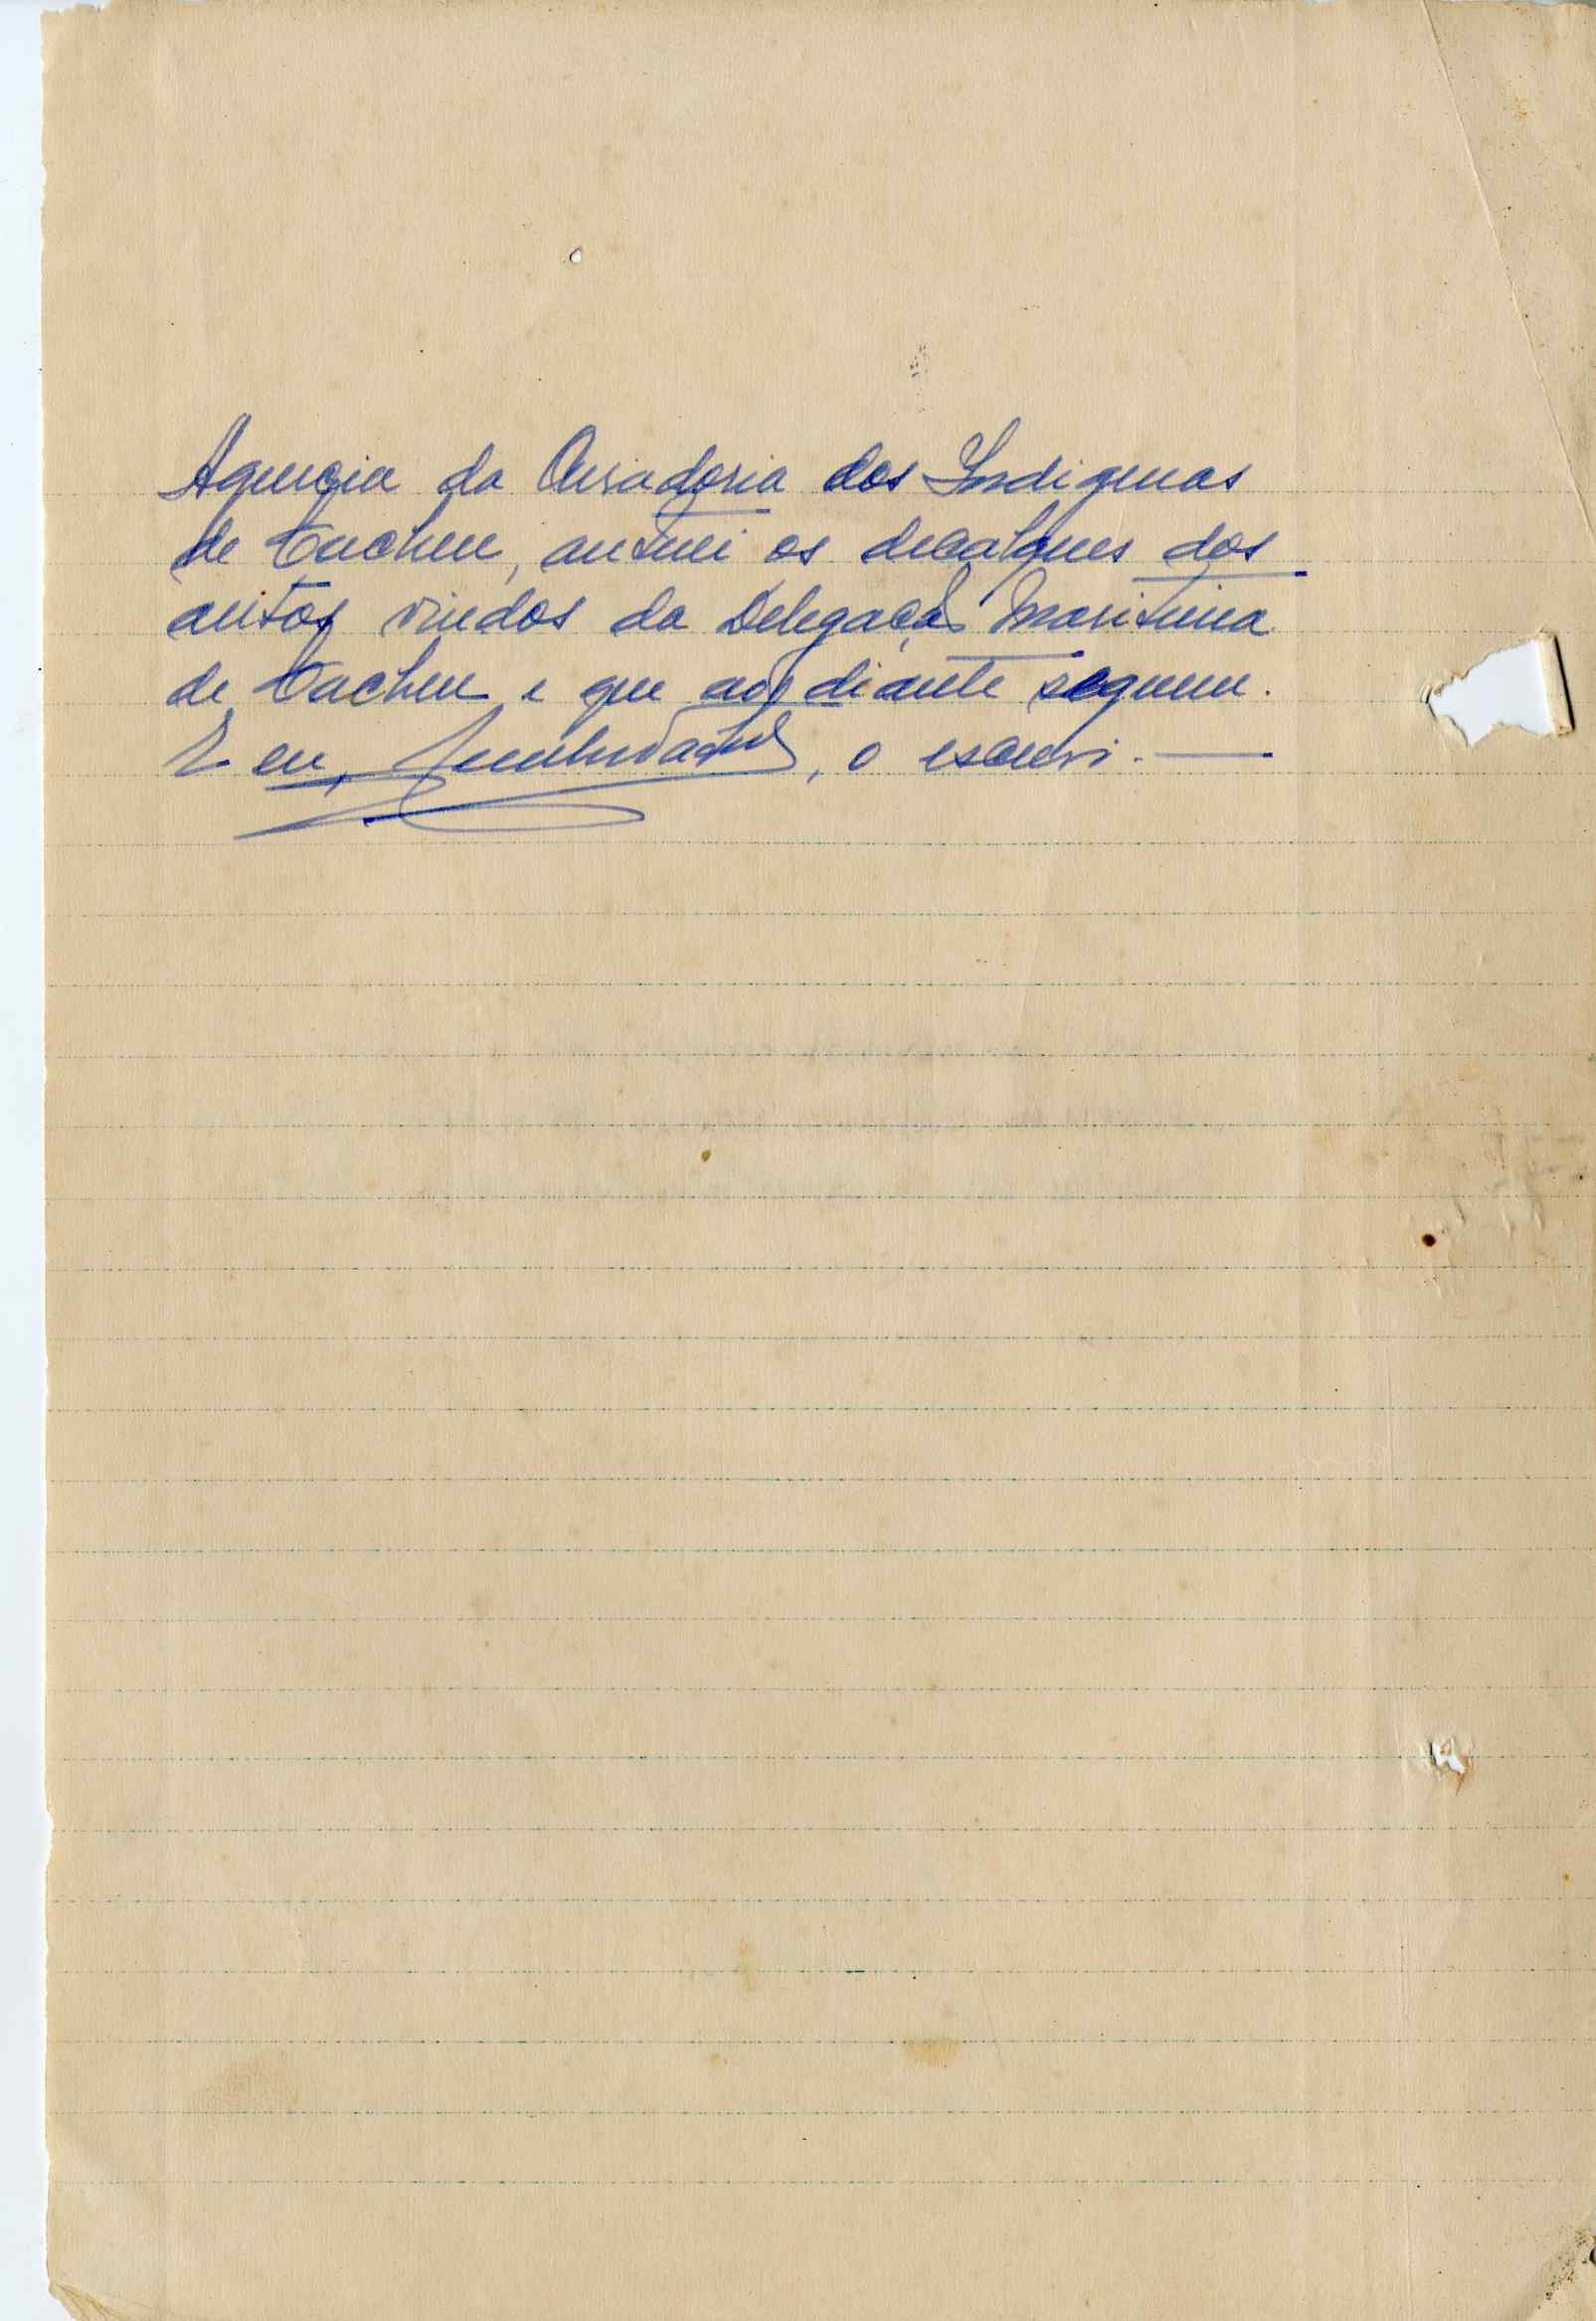 Agencia da Curadoria dos Indigenas
de Cacheu, autuei os decalques dos
autos vindos da Delegação Maritima
de Cacheu e que ao diante seguem.
E eu, , o escrevi.